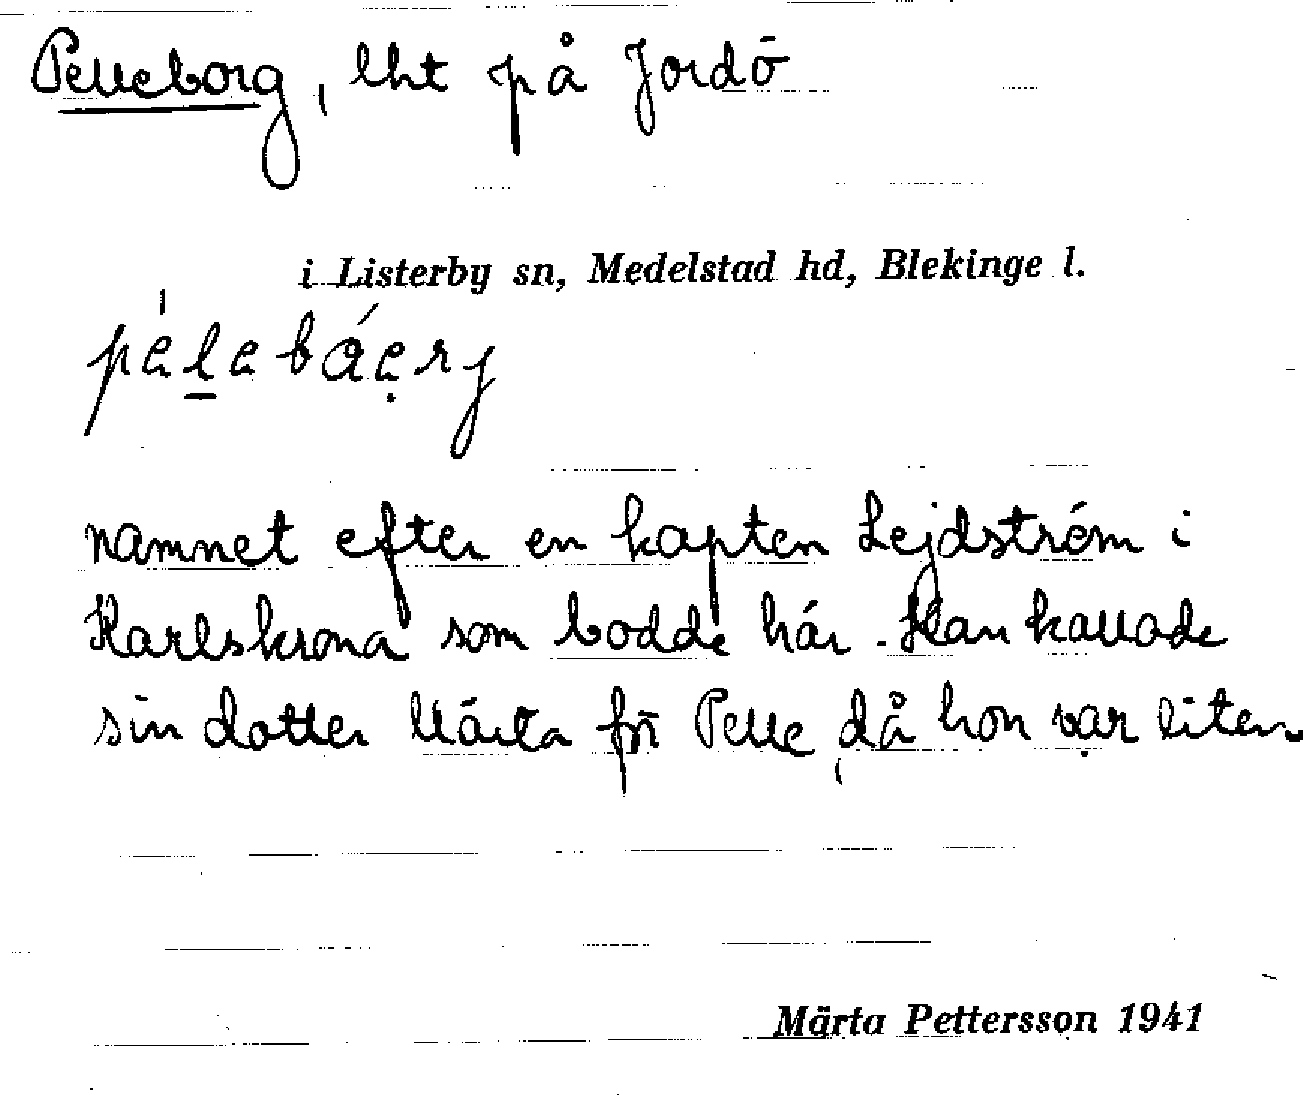 Pelleborg, lht på Jordö
i Listerby sn, Medelstad hd, Blekinge l.
namnet efter en kapten Lejdström i
Karlskrona som bodde här. Han kallade
sin dotter Märta för Pelle, då hon var liten
Märta Pettersson 1941